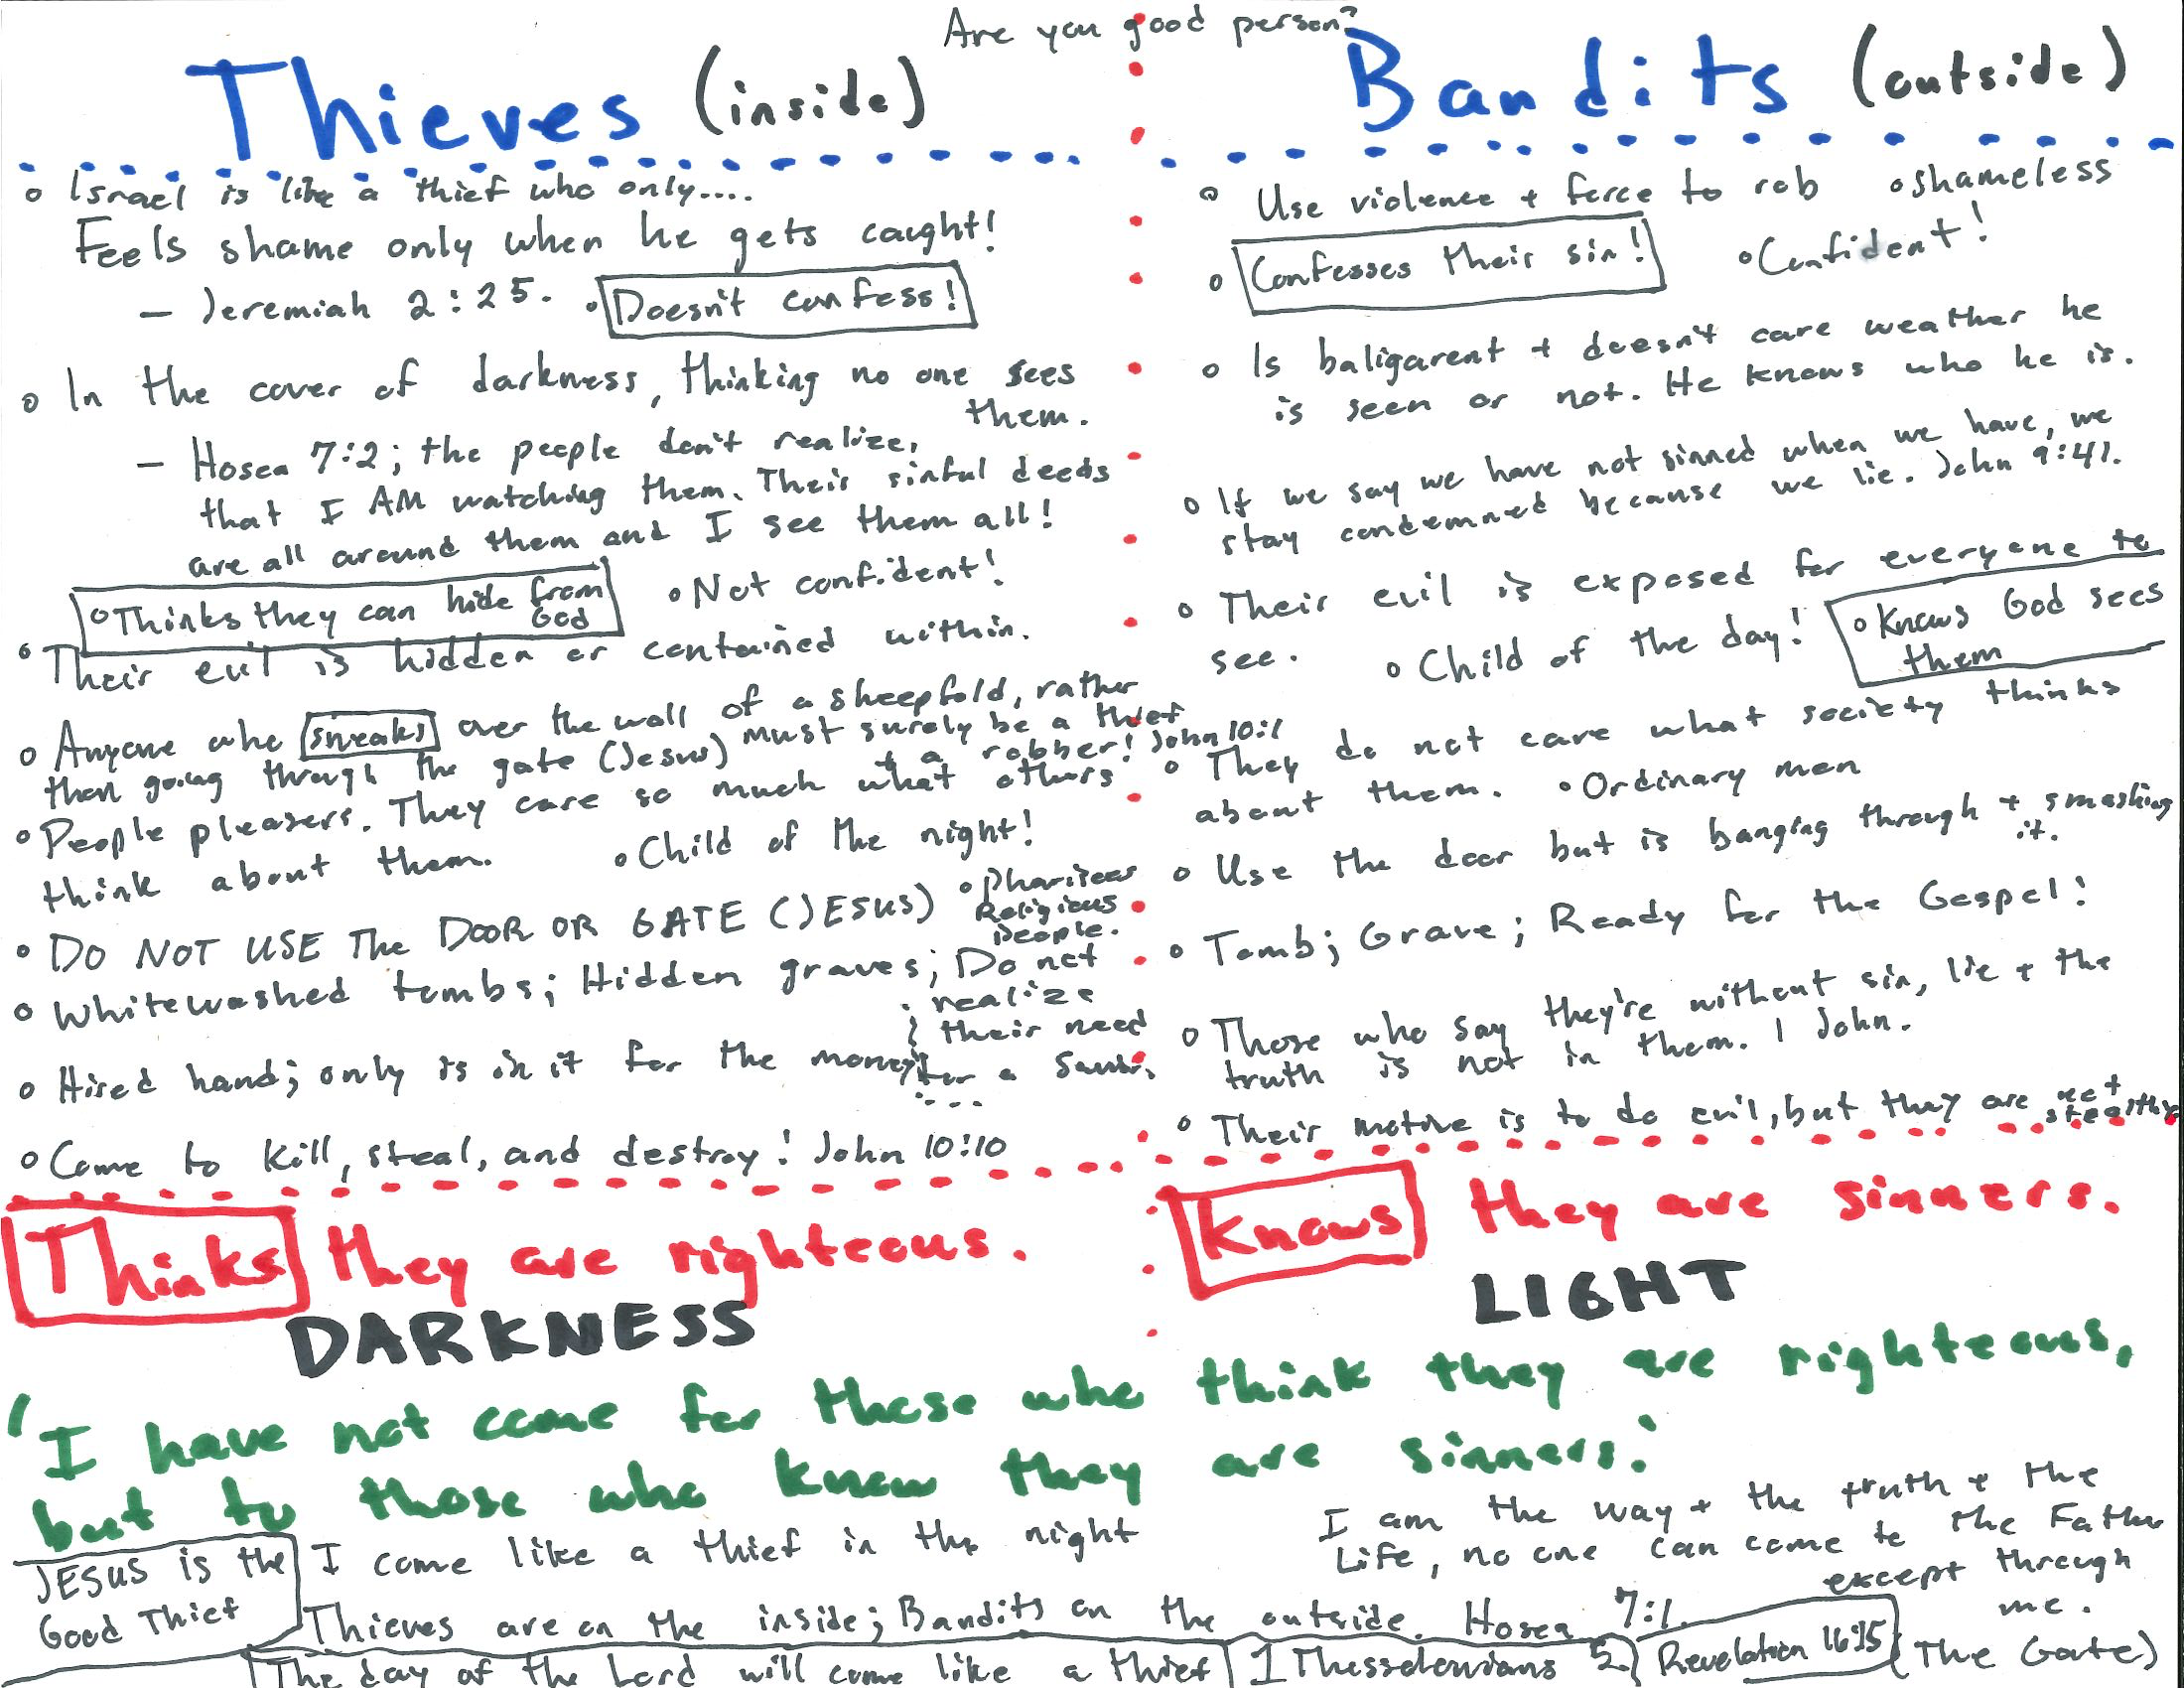 Are you good person?
Thieves (inside)
o Israel is like a thief who only....
Feels shame only when he gets caught!
— Jeremiah 2:25. o Doesn't confess!
o In the cover of darkness, thinking no one sees
them.
— Hosea 7:2; the people don't realize,
that I AM watching them. Their sinful deeds
are all around them and I see them all!
o Thinks they can hide from
God
o Not confident!
o Their evil is hidden or contained within.
o Anyone who sneaks over the wall of a sheepfold, rather
than going through the gate (Jesus) must surely be a thief
+ a robber! John 10:1
o People pleasers. They care so much what others
think about them. o Child of the night!
o DO NOT USE The DOOR OR GATE (JESUS)
o Pharisees
Religious
people.
o Whitewashed tombs; Hidden graves; Do not
realize
their need
for a Savior.
o Hired hand; only is in it for the money
o Come to kill, steal, and destroy! John 10:10
Thinks they are righteous.
DARKNESS
Bandits (outside)
o Use violence + force to rob o shameless
o Confesses their sin! o Confident!
o Is baligarent + doesn't care weather he
is seen or not. He knows who he is.
o If we say we have not sinned when we have, we
stay condemned because we lie. John 9:41.
o Their evil is exposed for everyone to
see. o Child of the day! o Knows God sees
them
o They do not care what society thinks
about them. o Ordinary men
o Use the door but is banging through + smashing
it.
o Tomb; Grave; Ready for the Gospel!
o Those who say they're without sin, lie + the
truth is not in them. 1 John.
o Their motive is to do evil, but they are not
stealthy
Knows they are sinners.
LIGHT
'I have not come for those who think they are righteous,
but to those who know they are sinners.'
JESUS is the
Good Thief
I come like a thief in the night
I am the way + the truth + the
Life, no one can come to the Father
except through
me.
(The Gate)
Thieves are on the inside; Bandits on the outside. Hosea 7:1.
The day of the Lord will come like a thief 1 Thessalonians 5. Revelation 16:15